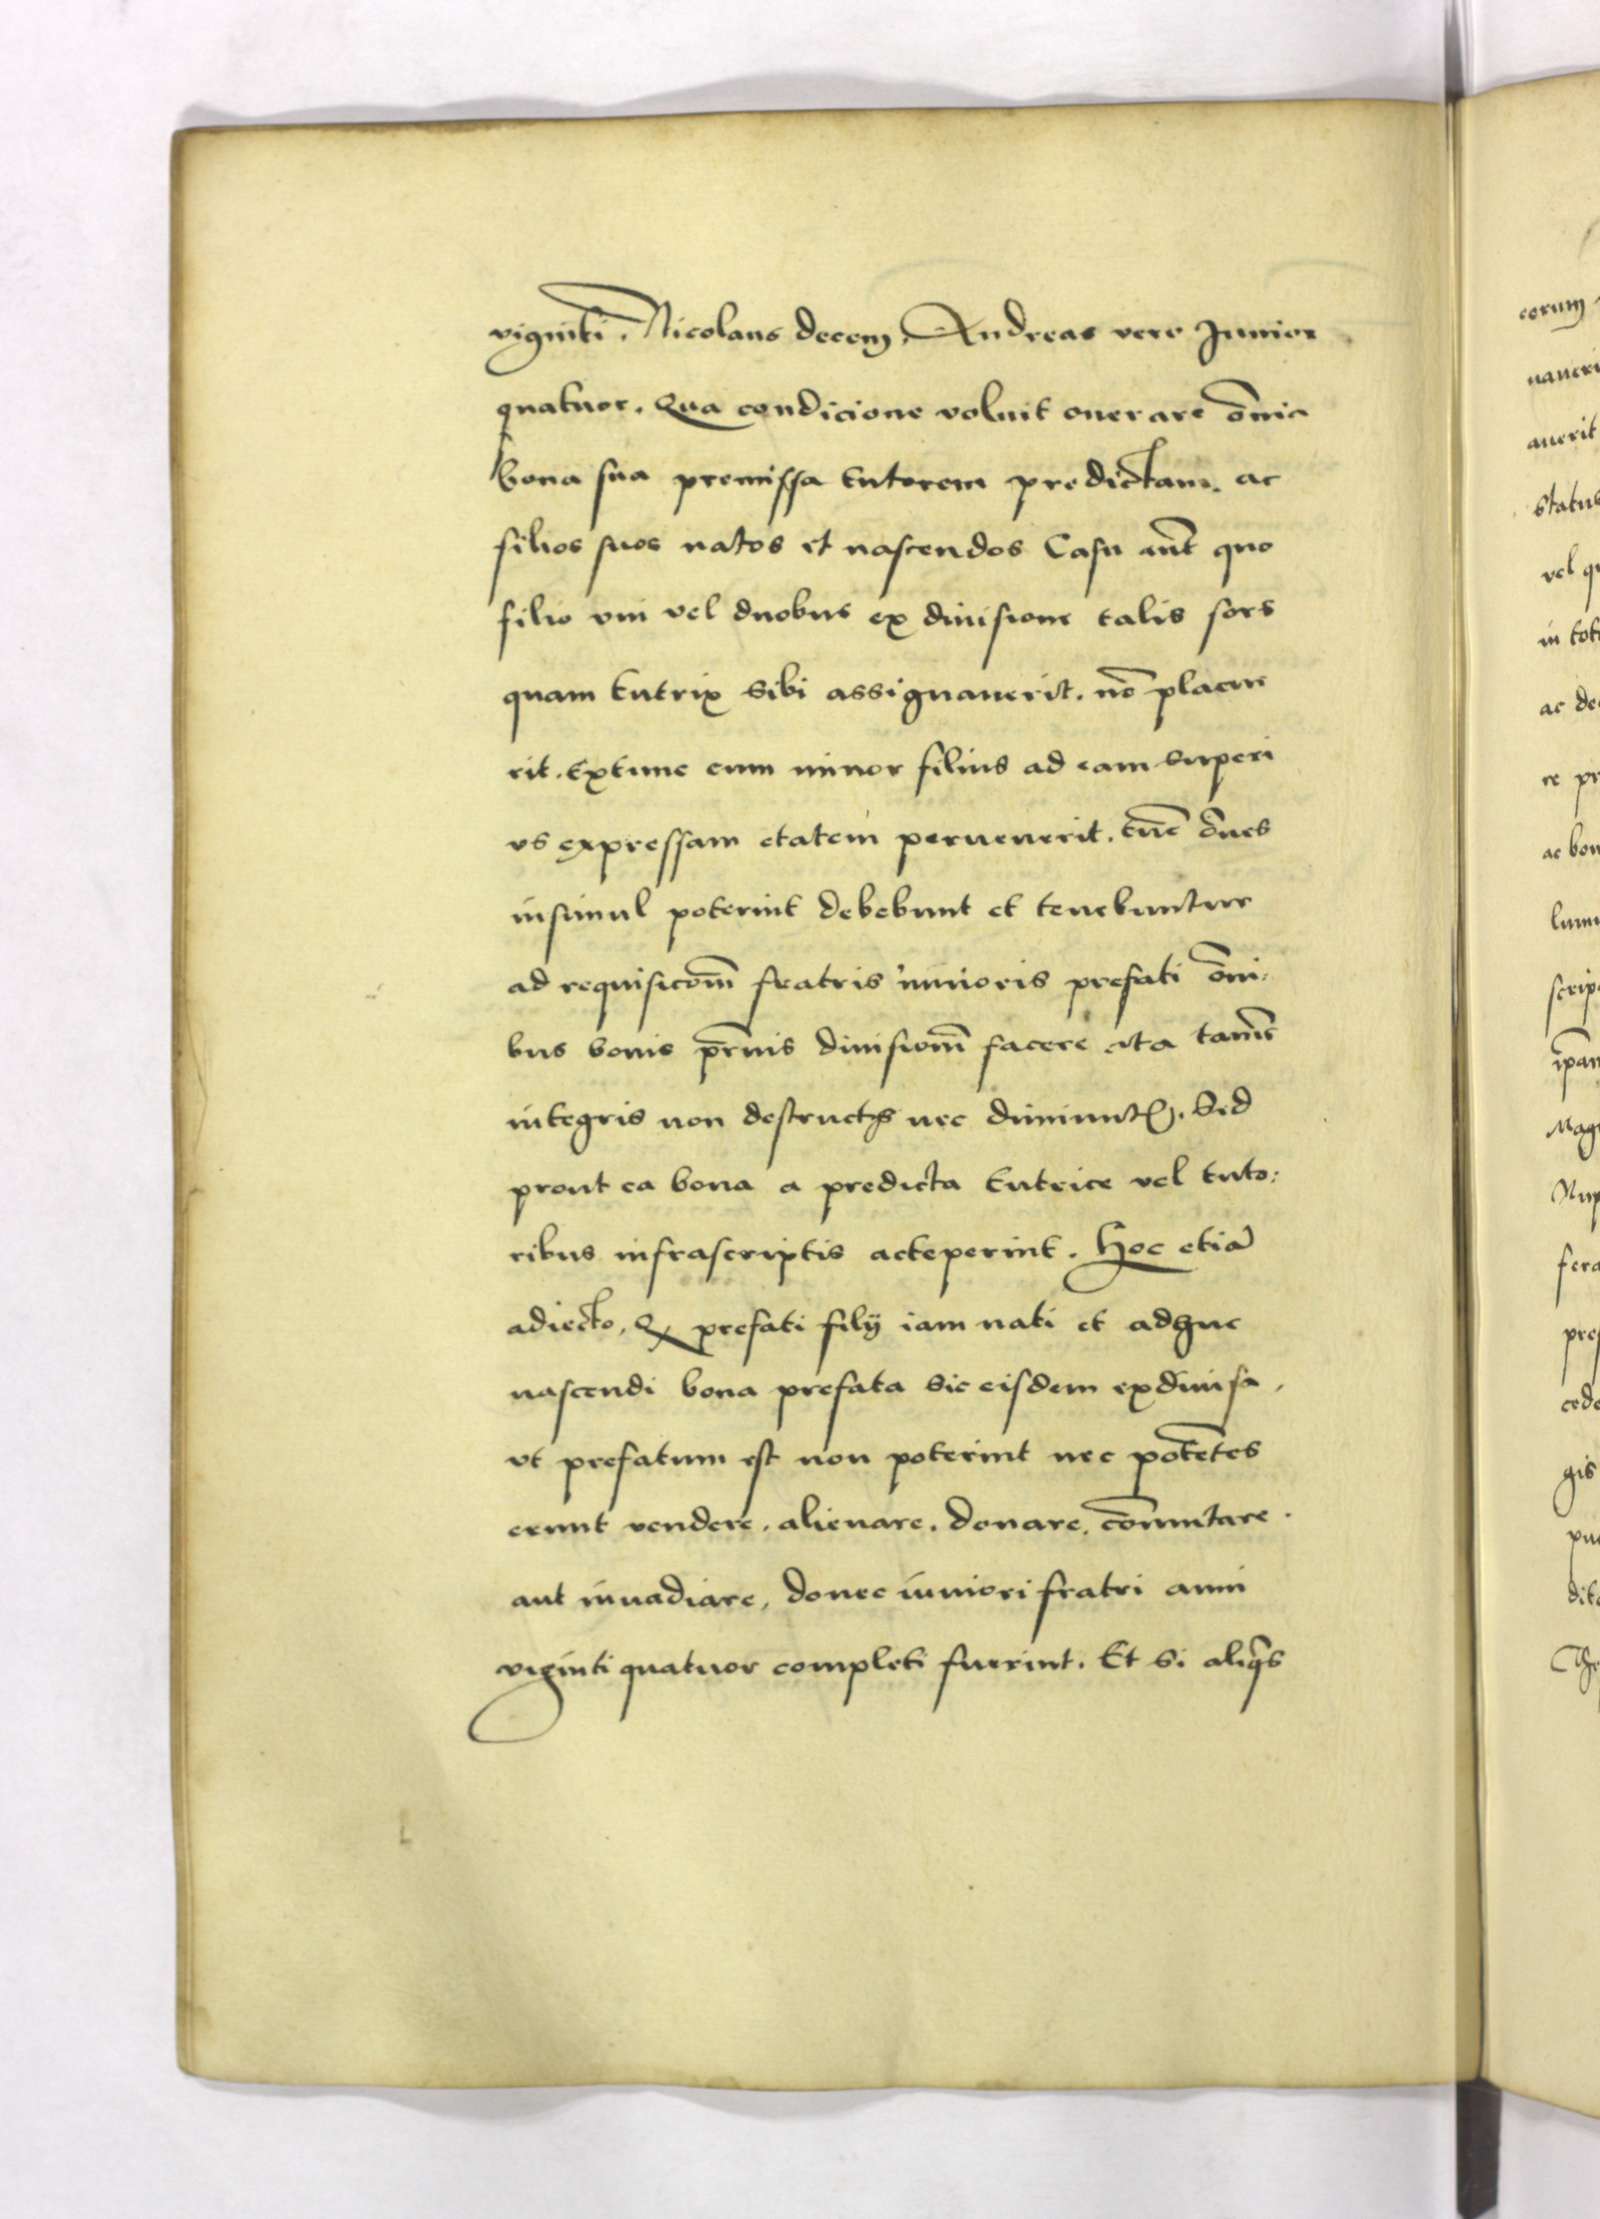 viginti. Nicolaus decem, Andreas vero Junior
quatuor. Qua condicione voluit onerare om̅ia
bona sua premissa tutorem predictam. ac
filios suos natos et nascendos Casu aut̅ quo
filio vni vel duobus ex diuisione talis sors
quam tutrix sibi assignauerit. no̅ placue
rit. extunc cum minor filius ad eam superi
us expressam etatem peruenerit. tu̅c o̅nes
insimul poterint debebunt et tenebuntur
ad requisico̅m fratris iunioris prefati om̅i:
bus bonis p̅rnis diuisio̅m facere ita tame̅
integris non destructis nec diminut. Sed
prout ea bona a predicta tutrice vel tuto:
ribus infrascriptis acceperint. Hoc etia̅
adiecto, Q prefati filij iam nati et adhuc
nascendi bona prefata sic eisdem exdiuisa,
vt prefatum est non poterint nec pote̅tes
erunt vendere, alienare, donare, com̅utare.
aut inuadiare, donec iuniori fratri anni
viginti quatuor completi fuerint. Et si aliq̅s
eorum
aueri
auerit
status
vel
in
ac
re
ac
scrip
Mag
gis